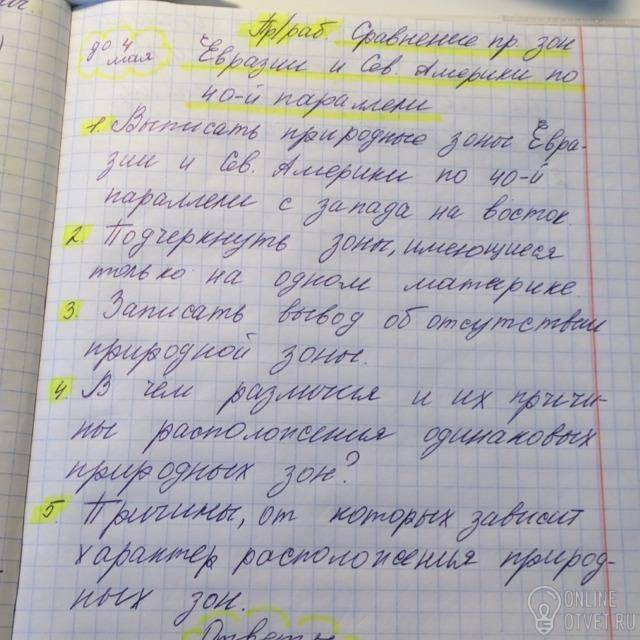 до 4 мая
Пр/раб. Сравнение пр. зон
Евразии и Сев. Америки по
40-й параллели
1. Выписать природные зоны Евра-
зии и Сев. Америки по 40-й
параллели с запада на восток.
2. Подчеркнуть зоны, имеющиеся
только на одном материке.
3. Записать вывод об отсутствии
природной зоны.
4. В чем различия и их причи-
ны расположения одинаковых
природных зон?
5. Причины, от которых зависит
характер расположения природ-
ных зон.
Ответы
ONLINE
OTVET.RU